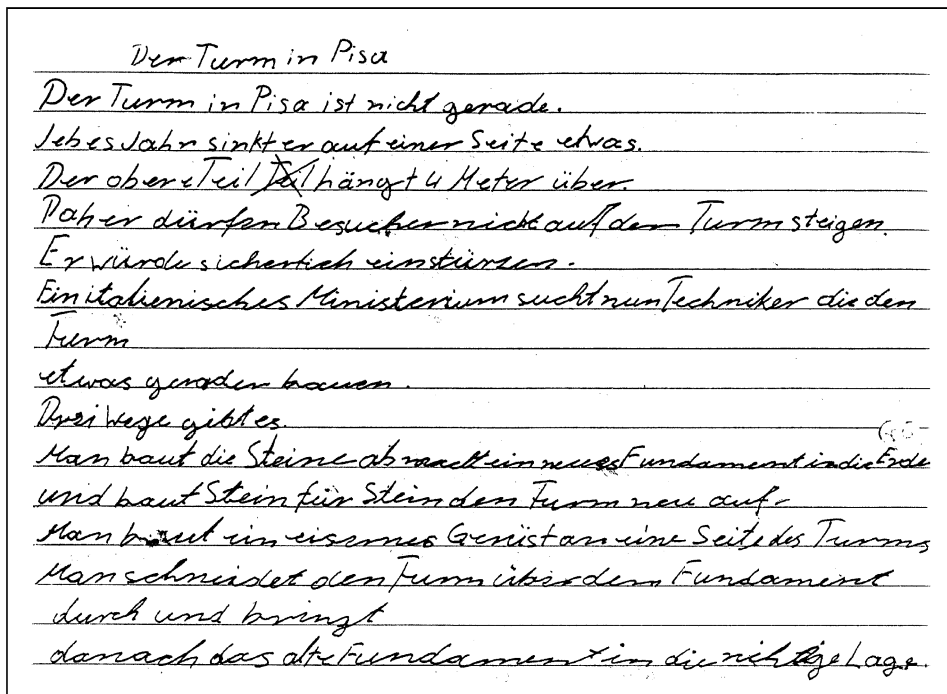 Der Turm in Pisa
Der Turm in Pisa ist nicht gerade.
Jebes Jahr sinkt er auf einer Seite etwas.
Der obere Teil hängt 4 Meter über.
Daher dürfen Besucher nicht auf den Turm steigen.
Er würde sicherlich einstürzen.
Ein italienisches Ministerium sucht nun Techniker die den
Turm
etwas gerader bauen.
Drei Wege gibt es.
Man baut die Steine ab macht ein neues Fundament in die Erde
und baut Stein für Stein den Turm neu auf.
Man baut ein eisernes Gerüst an eine Seite des Turms
Man schneidet den Turm über dem Fundament
durch und bringt
danach das alte Fundament in die richtige Lage.